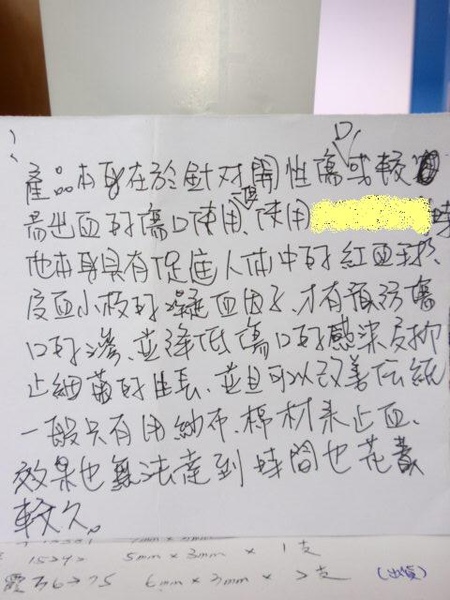 產品本身在於針對開性傷口或較
易出血的傷口使用,但使用 時
他本身具有促進人体中的紅血球、
及血小板的凝血因子,才有預防傷
口的滲,並降低傷口的感染及抑
止細菌的生長、並且可以改善传統
一般只有用紗布、棉材来止血、
效果也無法達到時間也花費
較久。
15747 5mm × 3mm × 1支
6mm × 3mm × 2支 (出貨)